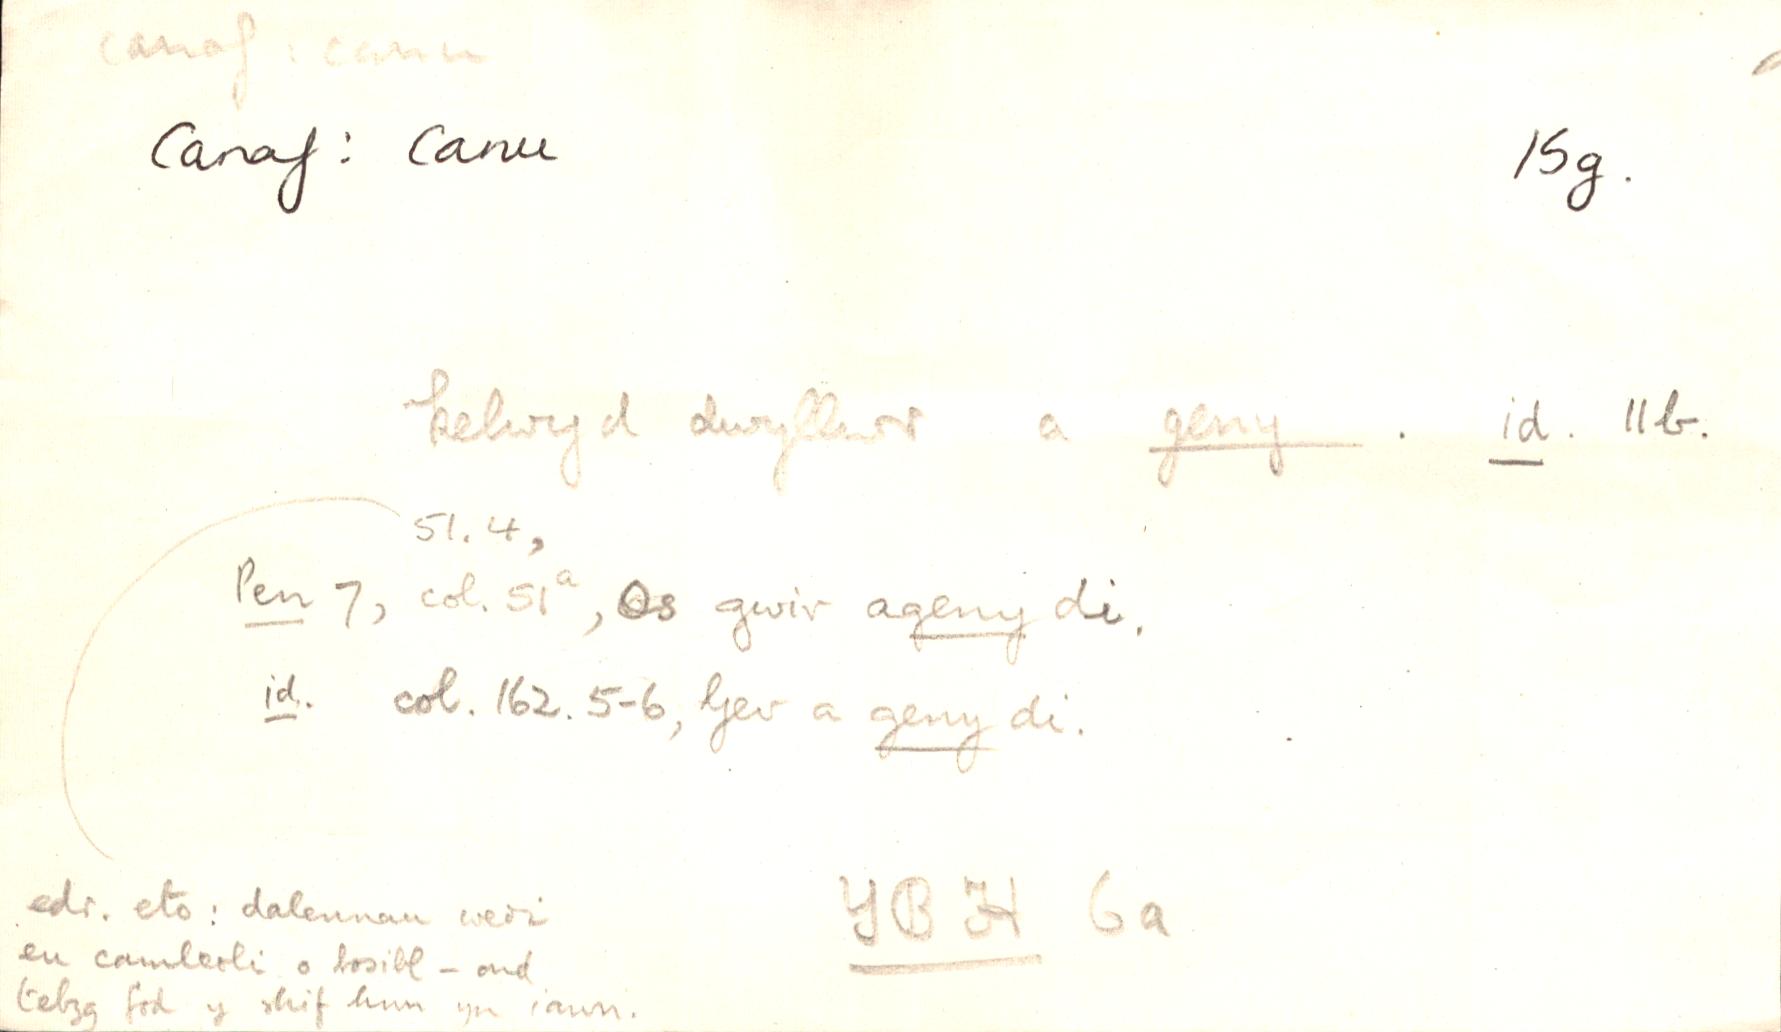 canaf : canu
Canaf : Canu 15g.
kelwyd dwyllwr a geny . id. 11b.
51.4,
Pen 7, col. 51a, Os gwir ageny di.
id. col. 162. 5-6, Gev a geny di.
YBH 6a
edr. eto : dalennau wedi
eu camleoli o bosibl - ond
tebyg fod y rhif hwn yn iawn.